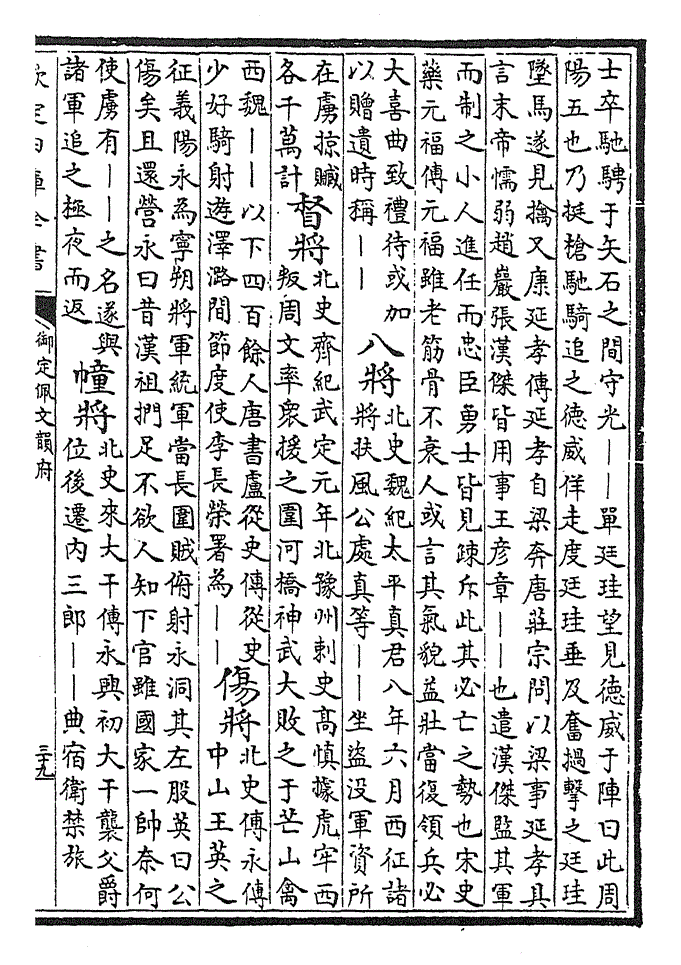 士卒馳騁于矢石之間守光——單廷珪望見德威于陣曰此周
陽五也乃挺槍馳騎追之德威佯走度廷珪垂及奮撾擊之廷珪
墜馬遂見擒又康延孝傳延孝自梁奔唐莊宗問以梁事延孝具
言末帝懦弱趙巖張漢傑皆用事王彥章——也遣漢傑監其軍
而制之小人進任而忠臣勇士皆見疎斥此其必亡之勢也宋史
藥元福傳元福雖老筋骨不衰人或言其氣貌益壯當復領兵必
大喜曲致禮待或加
以贈遺時稱——
八將
北史魏紀太平真君八年六月西征諸
將扶風公處真等——坐盜没軍資所
在虜掠贓
各千萬計
督將
北史齊紀武定元年北豫州刺史高慎據虎牢西
叛周文率衆援之圍河橋神武大敗之于芒山禽
西魏——以下四百餘人唐書盧從史傳從史
少好騎射遊澤潞間節度使李長榮署為——
傷將
北史傳永傳
中山王英之
征義陽永為寧朔將軍統軍當長圍賊俯射永洞其左股英曰公
傷矣且還營永曰昔漢祖捫足不欲人知下官雖國家一帥奈何
使虜有——之名遂與
諸軍追之極夜而返
幢將
北史來大干傳永興初大干襲父爵
位後遷内三郎——典宿衛禁旅
欽定四庫全書
御定佩文韻府
三十九